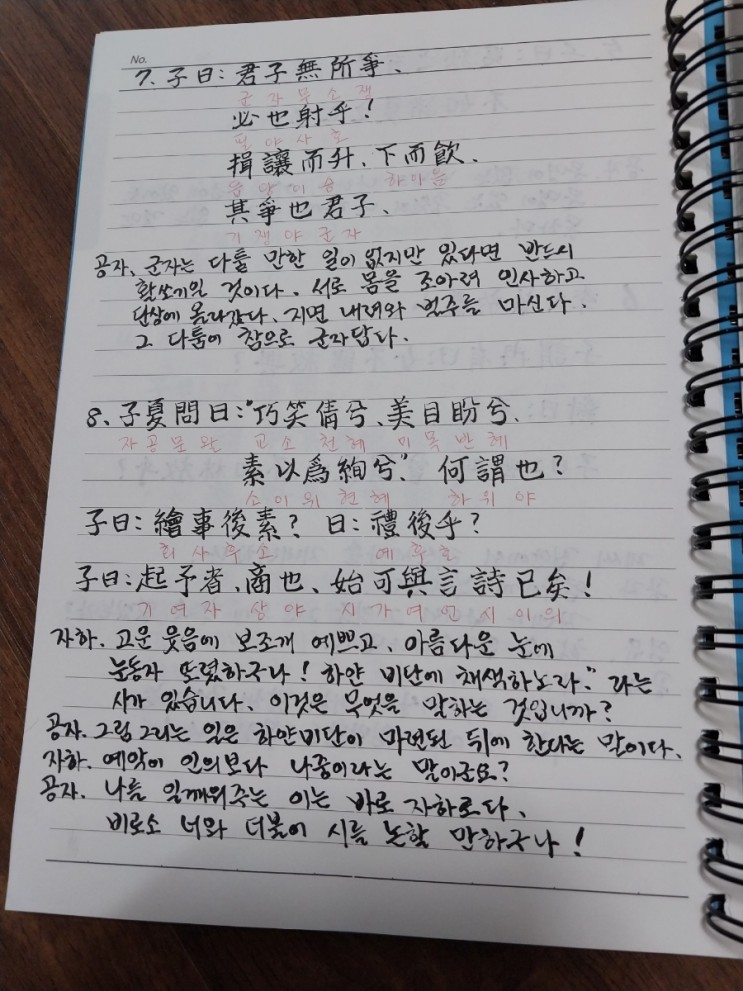 No.
7. 子曰: 君子無所爭、
군 자 무 소 쟁
必也射乎!
필 야 사 호
揖讓而升、下而飮、
읍 양 이 승 하 이 음
其爭也君子、
기 쟁 야 군 자
공자. 군자는 다툴 만한 일이 없지만 있다면 반드시
활쏘기일 것이다. 서로 몸을 조아려 인사하고
단상에 올라갔다. 지면 내려와 벌주를 마신다.
그 다툼이 참으로 군자답다.
8. 子夏問曰: "巧笑倩兮、美目盼兮、
자 공 문 왈 교 소 천 혜 미 목 반 혜
素以爲絢兮." 何謂也?
소 이 위 현 혜 하 위 야
子曰: 繪事後素? 曰: 禮後乎?
회 사 후 소 예 후 호
子曰: 起予者、商也、始可與言詩已矣!
기 여 자 상 야 시 가 여 언 시 이 의
자하. 고운 웃음에 보조개 예쁘고、아름다운 눈에
눈동자 또렸하구나! 하얀 비단에 채색하노라." 라는
시가 있습니다. 이것은 무엇을 말하는 것입니까?
공자. 그림그리는 일은 하얀비단이 마련된 뒤에 한다는 말이다.
자하. 예악이 인의보다 나중이라는 말이군요?
공자. 나를 일깨워주는 이는 바로 자하로다、
비로소 너와 더불어 시를 논할 만하구나!